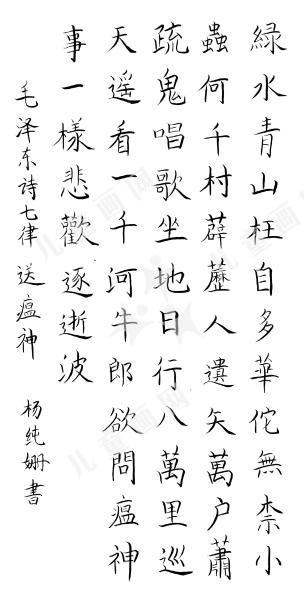 綠水青山枉自多華佗無柰小
蟲何千村薜藶人遺矢萬户蕭
疏鬼唱歌坐地日行八萬里巡
天遥看一千河牛郎欲問瘟神
事一樣悲歡逐逝波
毛泽东诗七律 送瘟神
杨纯姗書